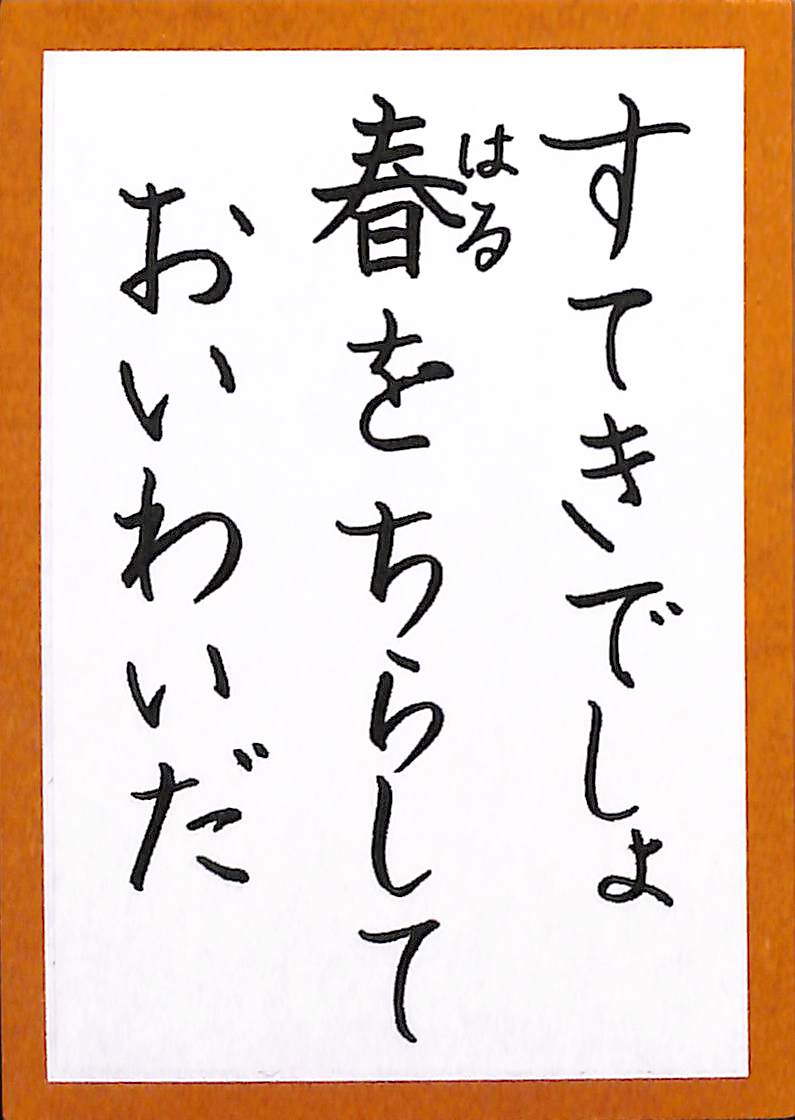 すてきでしょ
春をちらして
はる
おいわいだ